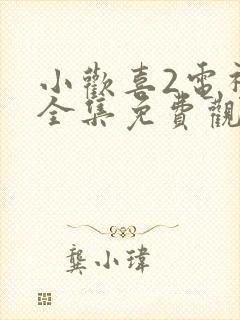 小歡喜2電視
全集免費觀
龔小瑋